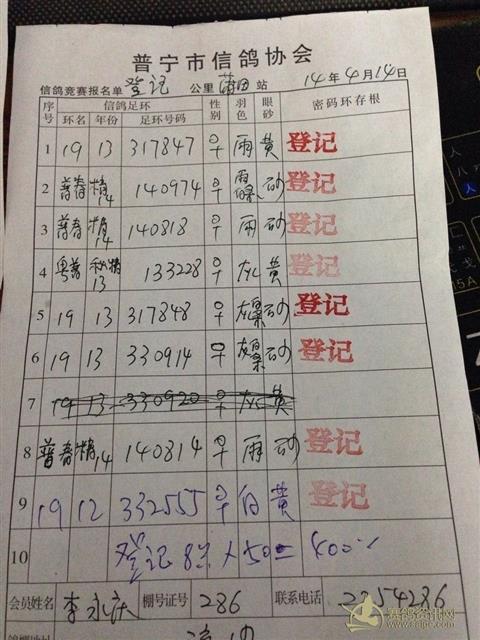 普宁市信鸽协会
信鸽竞赛报名单 登记 公里 莆田 站 14年4月14日
序号 信鸽足环 性别 羽色 眼砂 密码环存根
环名 年份 足环号码
1 19 13 317847 ♀ 雨 黄 登记
2 普春 精14 140974 ♀ 雨白条 砂 登记
3 普春 精14 140818 ♀ 雨 砂 登记
4 粤普 秋精13 133228 ♀ 灰 黄 登记
5 19 13 317848 ♀ 砂 登记
6 19 13 330914 ♀ 砂 登记
7 19 13 330920 ♀ 灰 黄
8 普春 精14 140814 ♀ 雨 砂 登记
9 19 12 332555 ♀ 白 黄 登记
10 登记8羽×50= 400
会员姓名 李永庆 棚号证号 286 联系电话 2254286
赛鸽资讯网